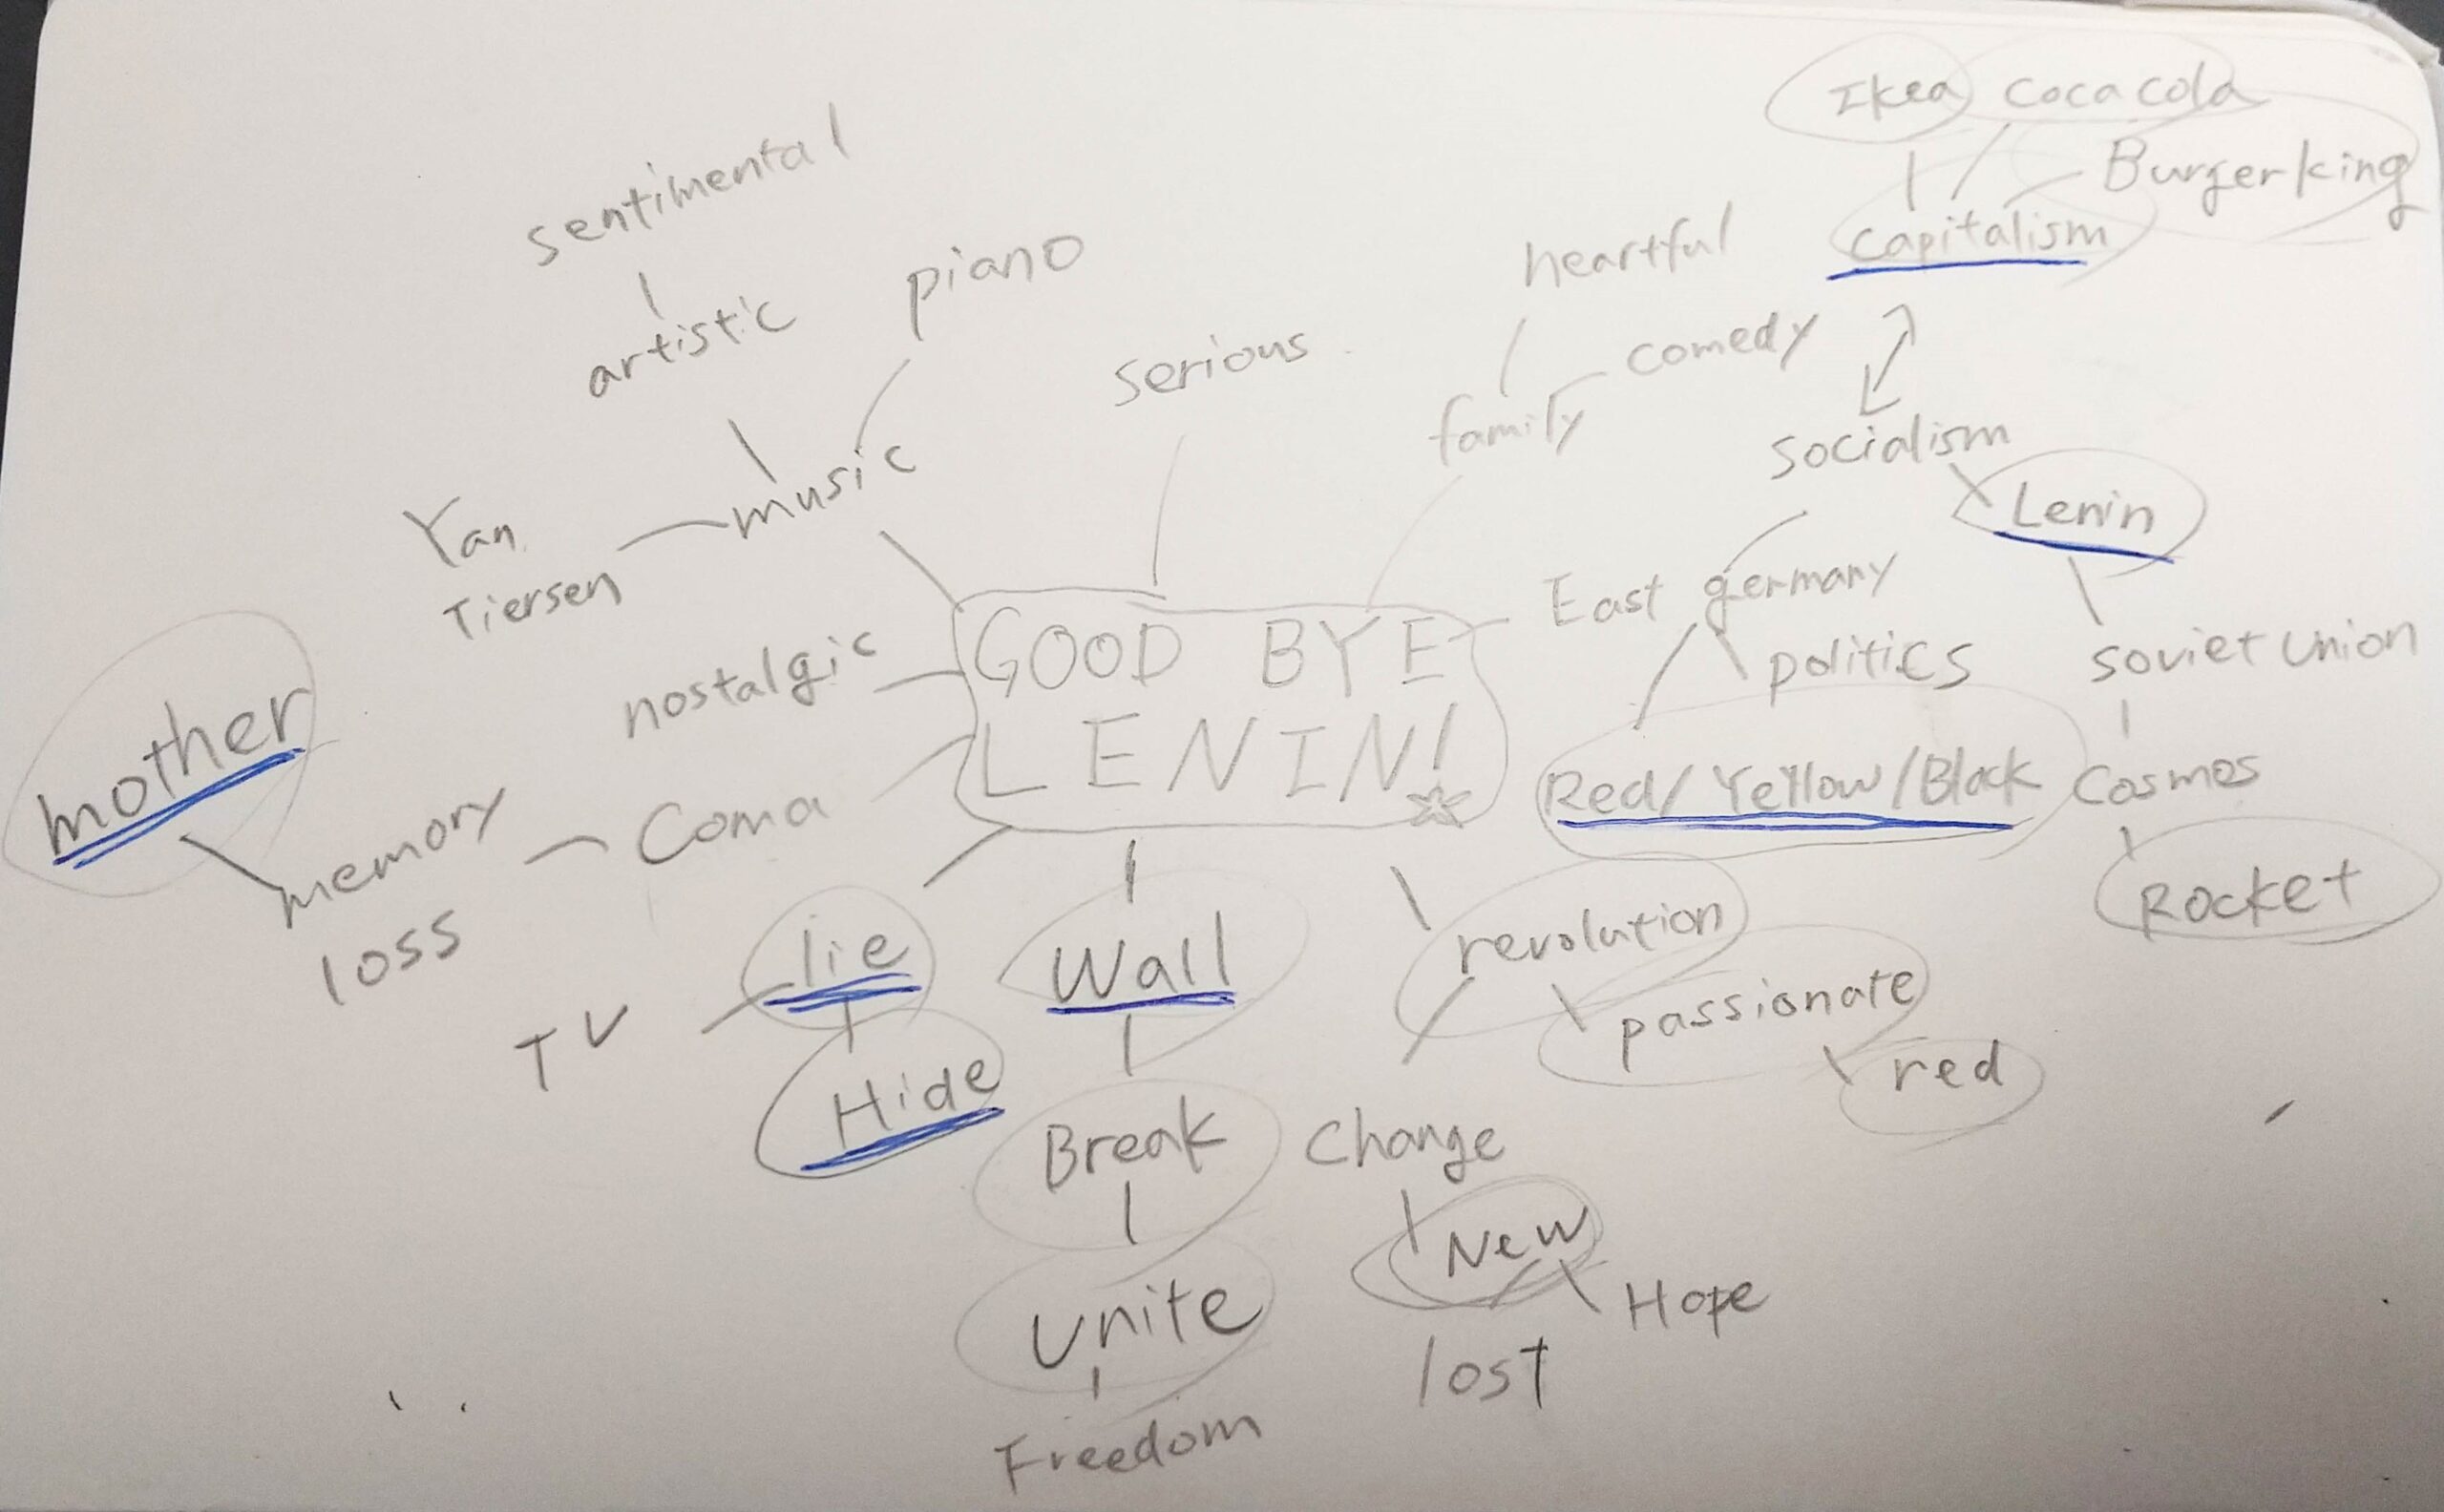 Ikea coca cola
Burger king
capitalism
sentimental
artistic
piano
heartful
comedy
serious
family
socialism
music
Lenin
Yan
Tiersen
East germany
politics
soviet union
nostalgic
GOOD BYE
LENIN!
mother
memory
loss
Coma
Red/Yellow/Black
Cosmos
Rocket
lie
Wall
revolution
passionate
red
TV
Hide
Break
Change
New
Hope
lost
Unite
Freedom